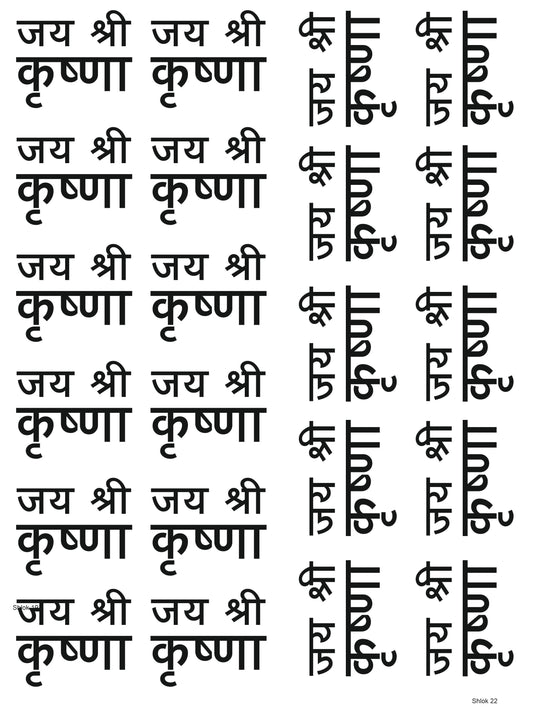 जय श्री जय श्री
कृष्णा कृष्णा
जय श्री जय श्री
कृष्णा कृष्णा
जय श्री जय श्री
कृष्णा कृष्णा
जय श्री जय श्री
कृष्णा कृष्णा
जय श्री जय श्री
कृष्णा कृष्णा
Shlok 19
जय श्री जय श्री
कृष्णा कृष्णा
जय श्री
कृष्णा
जय श्री
कृष्णा
जय श्री
कृष्णा
जय श्री
कृष्णा
जय श्री
कृष्णा
जय श्री
कृष्णा
जय श्री
कृष्णा
जय श्री
कृष्णा
जय श्री
कृष्णा
जय श्री
कृष्णा
Shlok 22